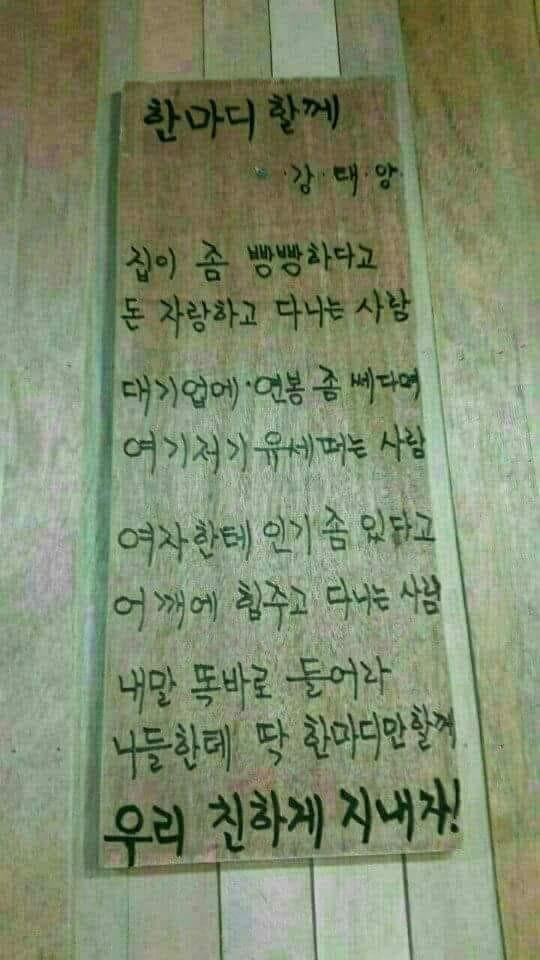 한마디 할께
·강·태·양·
집이 좀 빵빵하다고
돈 자랑하고 다니는 사람
대기업에·연봉 좀 쎄다며
여기저기 유세떠는 사람
여자한테 인기 좀 있다고
어깨에 힘주고 다니는 사람
내말 똑바로 들어라
니들한테 딱 한마디만할께
우리 친하게 지내자!